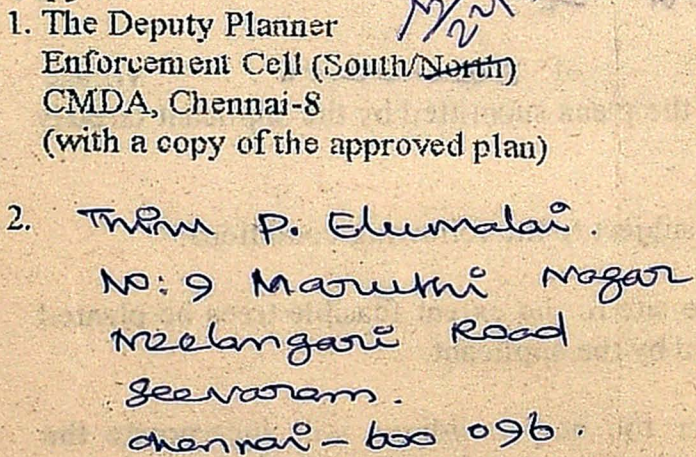 1. The Deputy Planner
Enforcement Cell (South/North)
CMDA, Chennai-8
(with a copy of the approved plan)
2. Thiru P. Elumalai.
No: 9 Maruthi Nagar
Neelangari Road
Seevaram.
Chennai - 600 096.